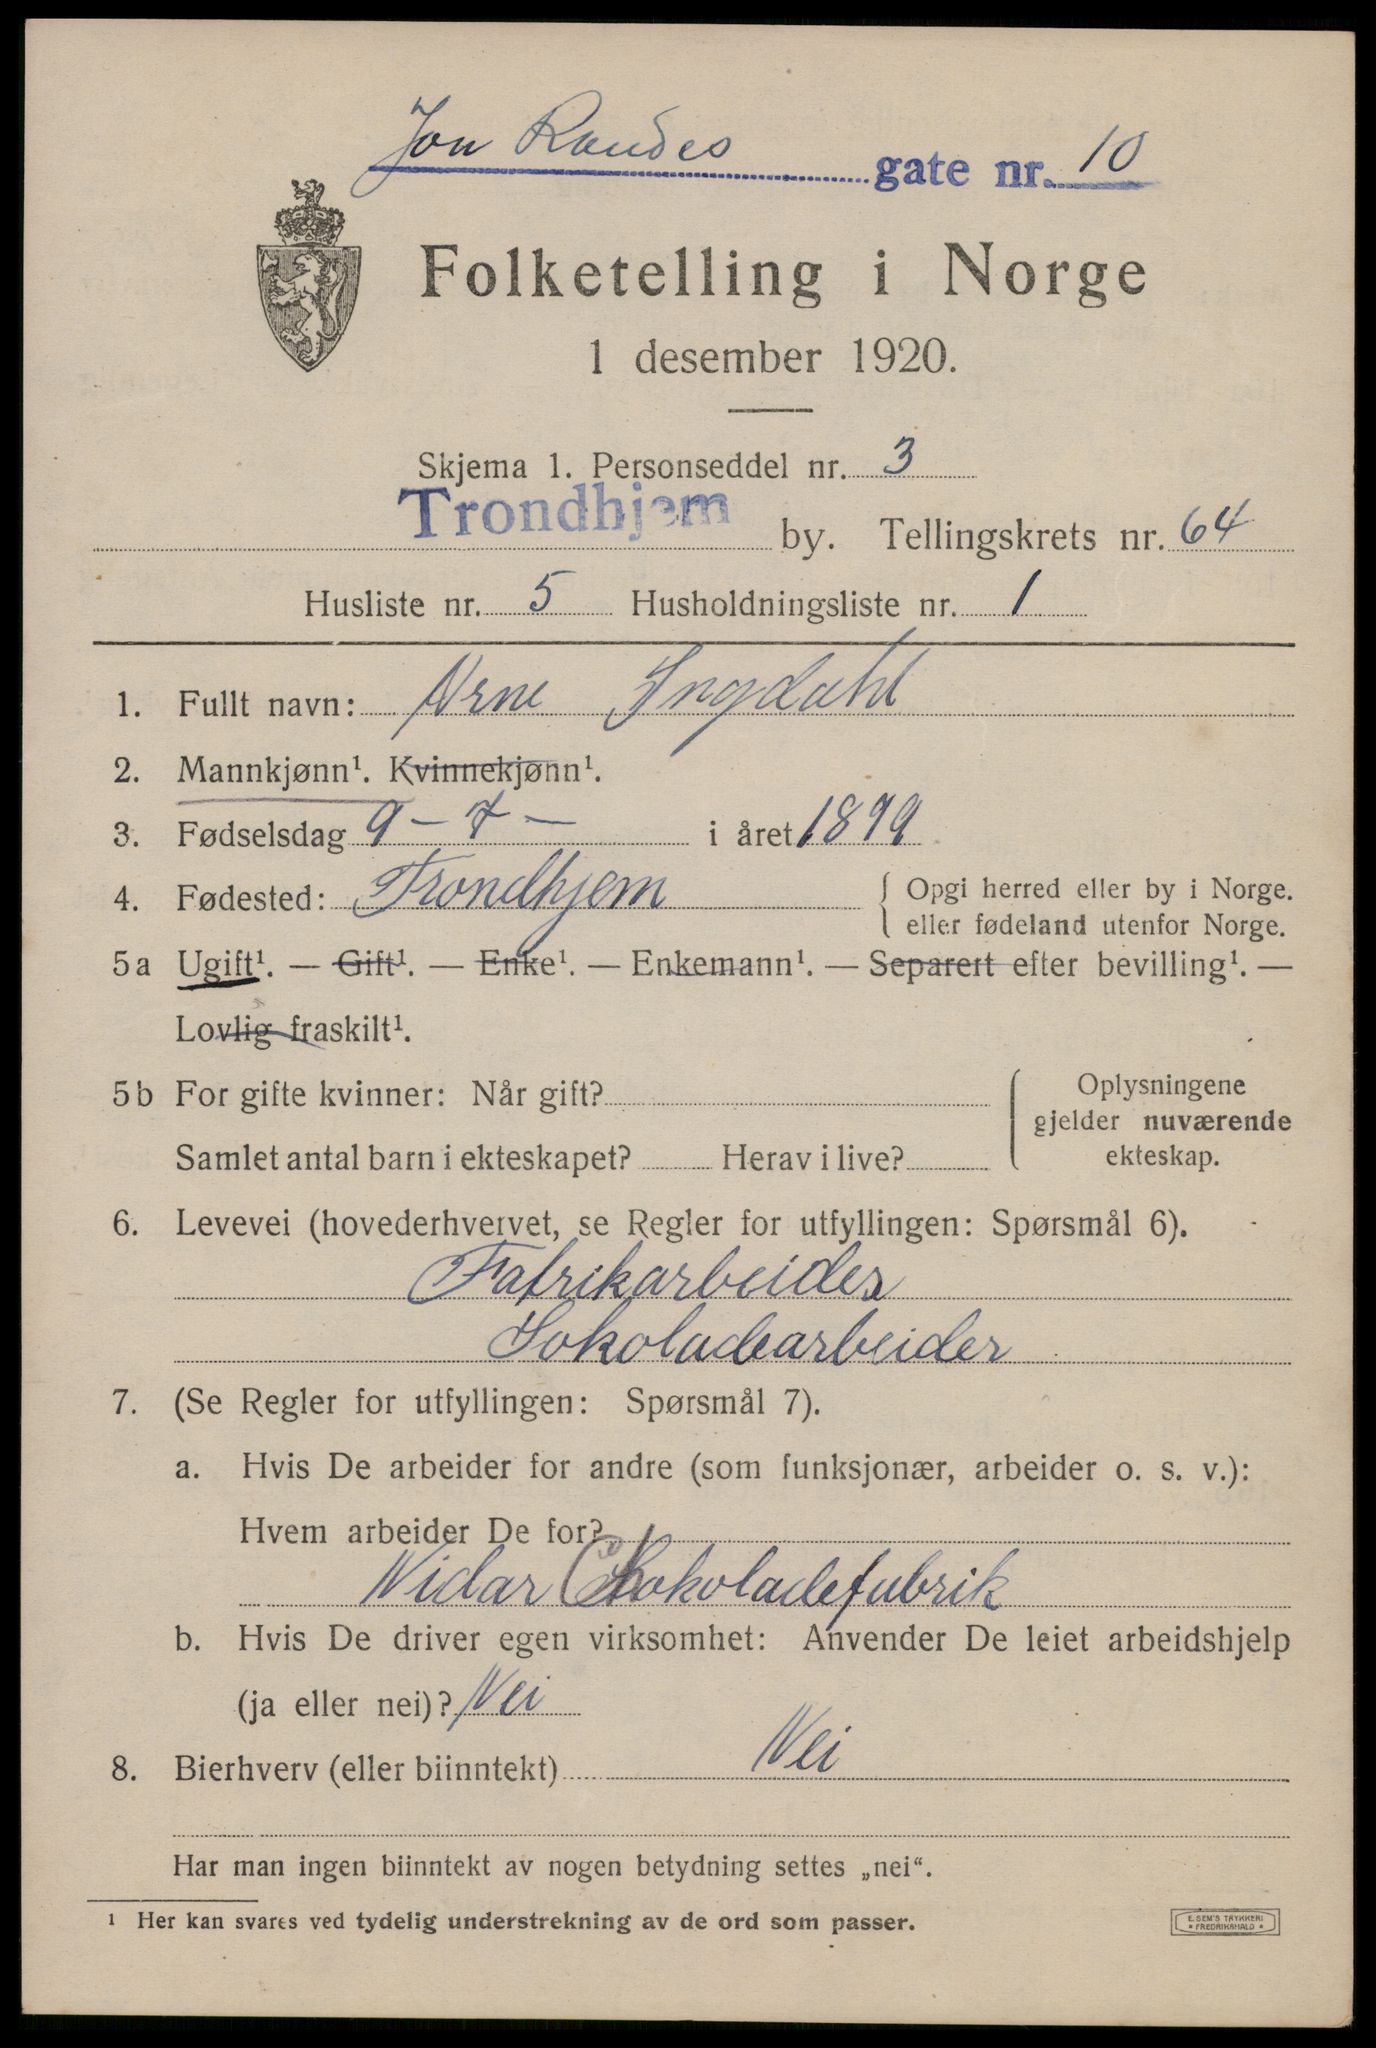 Jon Raudes gate nr. 10
Folketelling i Norge
1 desember 1920.
Skjema 1. Personseddel nr. 3
Trondhjem by. Tellingskrets nr. 64
Husliste nr. 5 Husholdningsliste nr. 1
1. Fullt navn: Arne Ingdahl
2. Mannkjønn¹. Kvinnekjønn¹.
3. Fødselsdag 9 - 7 - i året 1899
4. Fødested: Trondhjem { Opgi herred eller by i Norge.
eller fødeland utenfor Norge.
5a Ugift¹. — Gift¹. — Enke¹. — Enkemann¹. — Separert efter bevilling¹. —
Lovlig fraskilt¹.
5b For gifte kvinner: Når gift?
Samlet antal barn i ekteskapet? Herav i live?
Oplysningene
gjelder nuværende
ekteskap.
6. Levevei (hovederhvervet, se Regler for utfyllingen: Spørsmål 6).
Fabrikarbeider
Sokoladearbeider
7. (Se Regler for utfyllingen: Spørsmål 7).
a. Hvis De arbeider for andre (som funksjonær, arbeider o. s. v.):
Hvem arbeider De for?
Nidar Chokoladefabrik
b. Hvis De driver egen virksomhet: Anvender De leiet arbeidshjelp
(ja eller nei)? Nei
8. Bierhverv (eller biinntekt) Nei
Har man ingen biinntekt av nogen betydning settes „nei“.
¹ Her kan svares ved tydelig understrekning av de ord som passer.
E. SEM'S TRYKKERI
* FREDRIKSHALD *